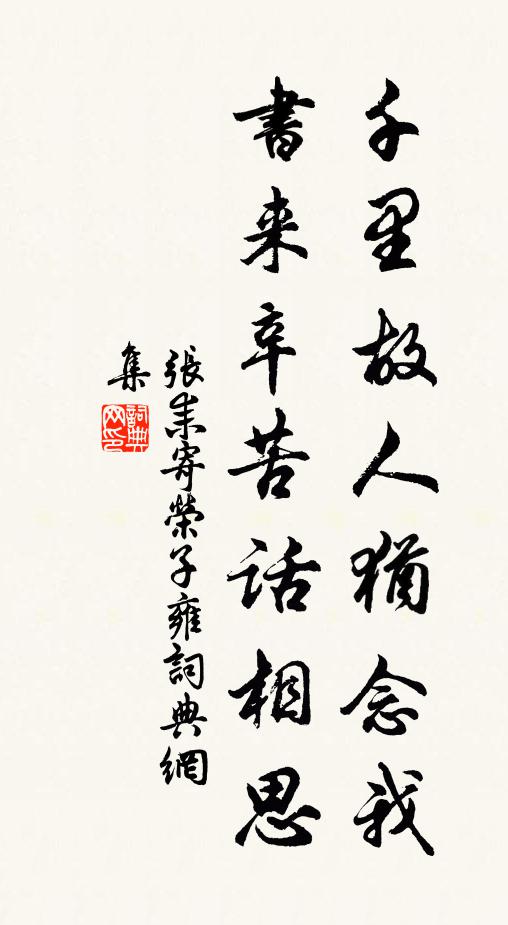 千里故人猶念我
書来辛苦話相思
張耒寄榮子雍詞典網
集
詞典
网印